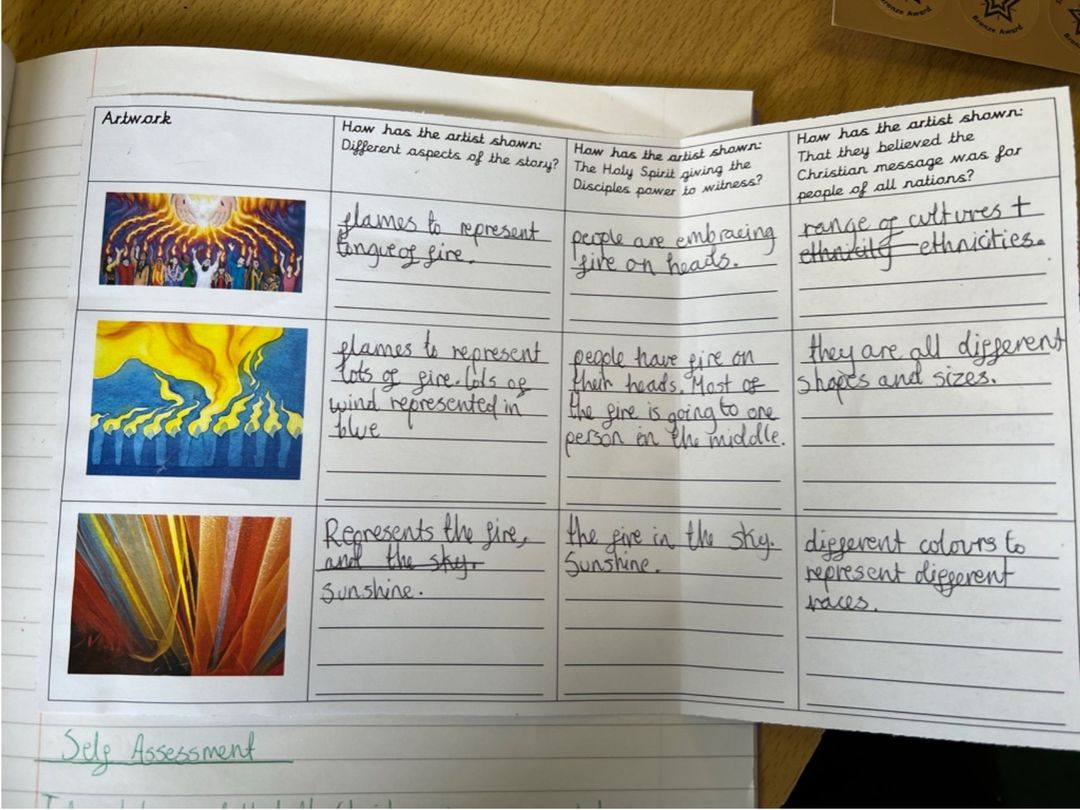 Bronze Award
Bronze Award
Artwork
How has the artist shown:
Different aspects of the story?
How has the artist shown:
The Holy Spirit giving the
Disciples power to witness?
How has the artist shown:
That they believed the
Christian message was for
people of all nations?
flames to represent
tongue of fire.
people are embracing
fire on heads.
range of cultures +
ethnicity ethnicities.
flames to represent
lots of fire. Lots of
wind represented in
blue
people have fire on
their heads. Most of
the fire is going to one
person in the middle.
they are all different
shapes and sizes.
Represents the fire,
and the sky.
sunshine.
the fire in the sky.
Sunshine.
different colours to
represent different
races.
Self Assessment